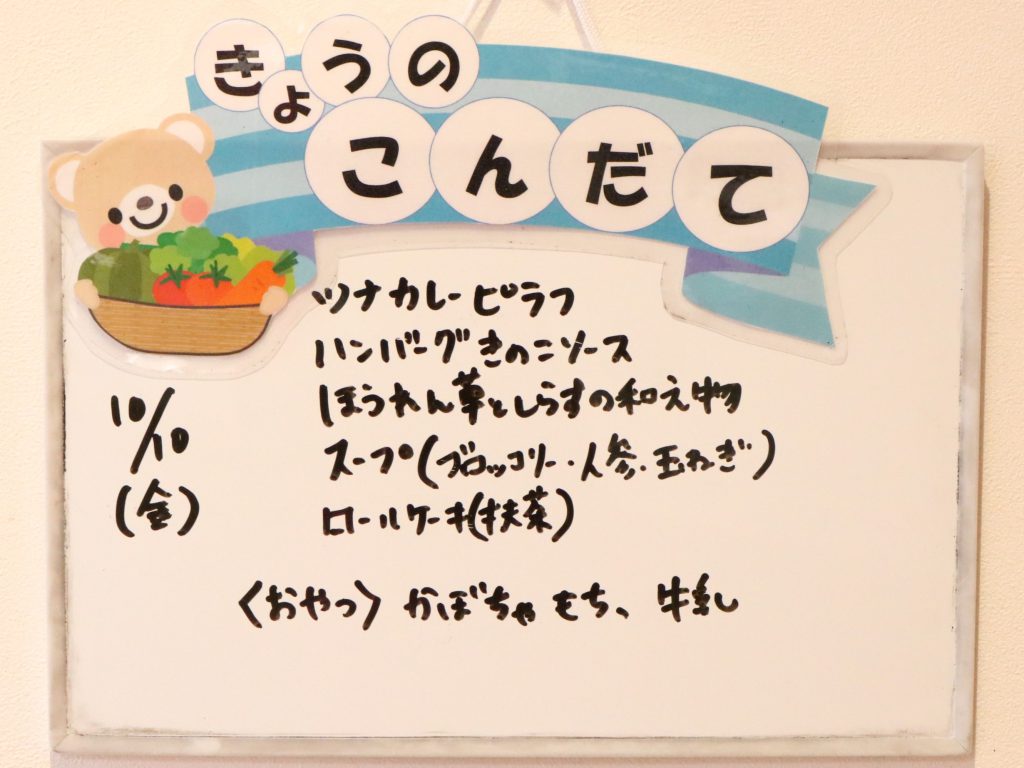 きょうの
こんだて
ツナカレーピラフ
ハンバーグきのこソース
ほうれん草としらすの和え物
スープ(ブロッコリー・人参・玉ねぎ)
ロールケーキ(抹茶)
10/10
(金)
〈おやつ〉かぼちゃもち、牛乳